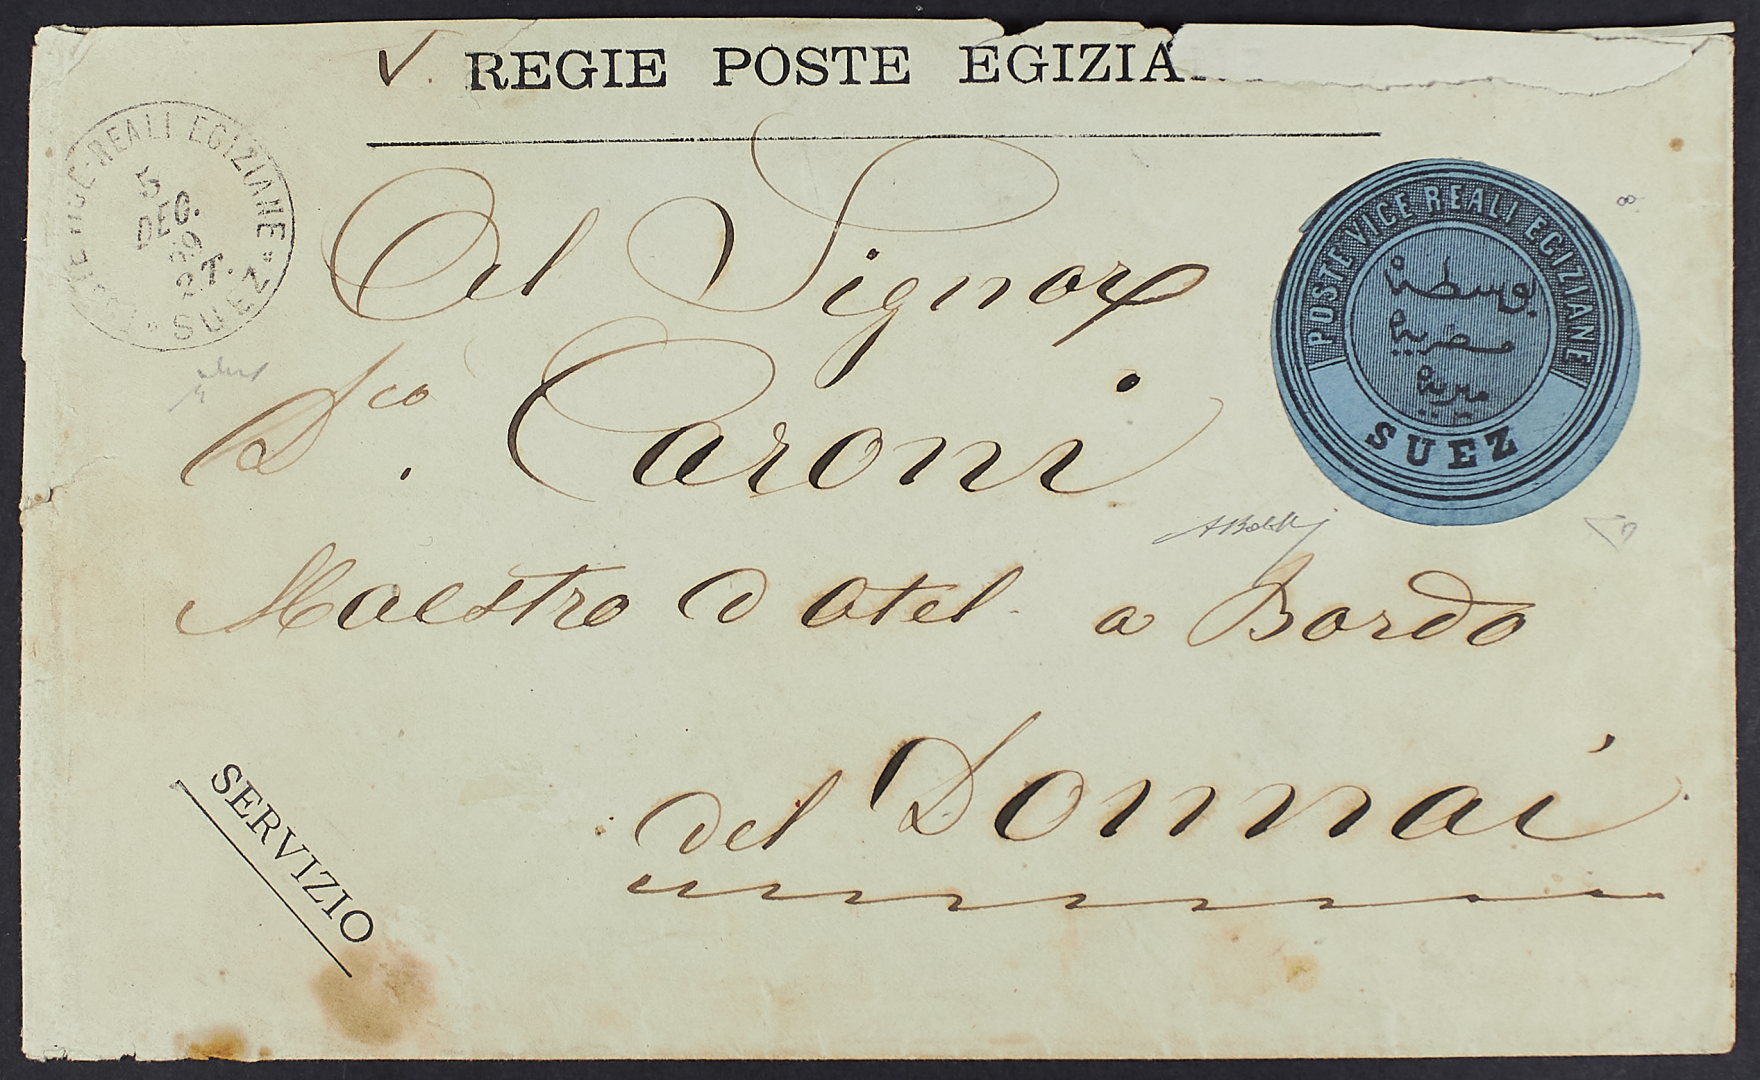 V. REGIE POSTE EGIZIA
POSTE VICE-REALI EGIZIANE
5
DEC.
69
2T.
SUEZ
POSTE VICE REALI EGIZIANE
بوسطة
مصرية
ميرية
SUEZ
Al Signor
Dco. Caroni
Maestro d otel a Bordo
del Donnai
SERVIZIO